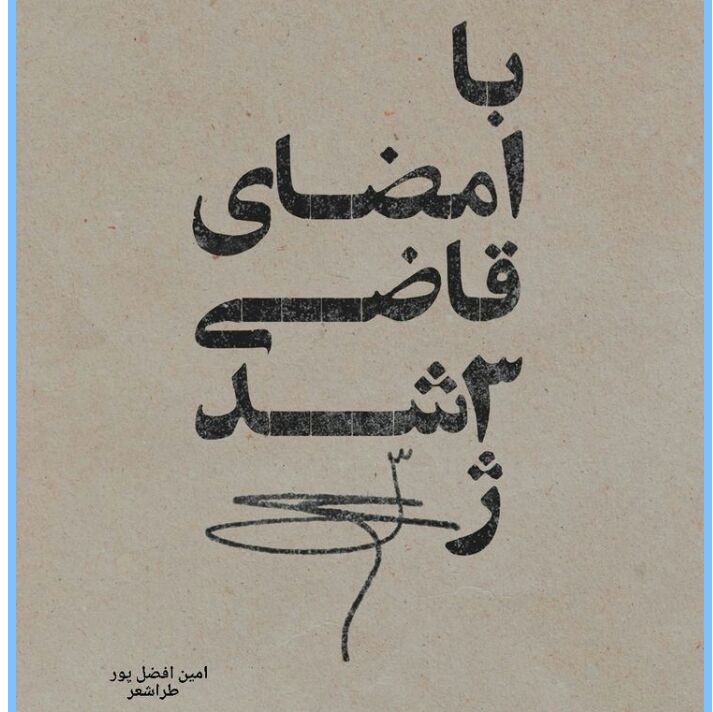 با
امضای
قاضی
۳اشد
ژ
امین افضل پور
طراشعر